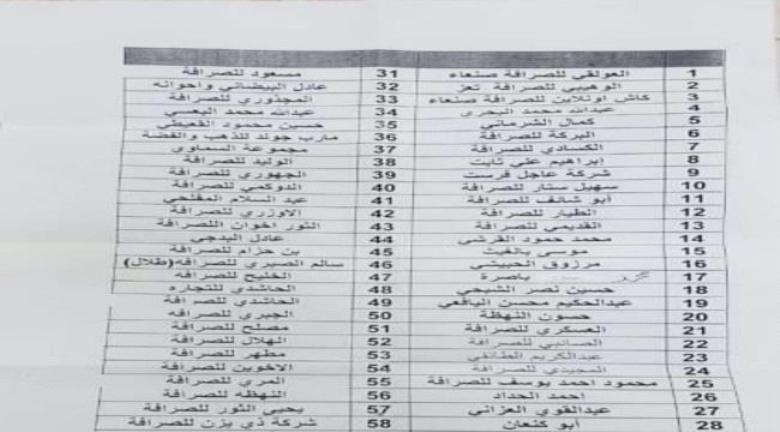 1 العولقي للصرافة صنعاء 31 مسعود للصرافة
2 الوهيبي للصرافة تعز 32 عادل البيضاني واخوانه
3 كاش اونلاين للصرافة صنعاء 33 المجذوري للصرافة
4 عبدالله محمد البحري 34 عبدالله محمد اليعسي
5 كمال الشرماني 35 حسين محمود القعيطي
6 البركة للصرافة 36 مارب جولد للذهب والفضة
7 الكسادي للصرافة 37 مجموعة السماوي
8 إبراهيم علي ثابت 38 الوليد للصرافة
9 شركة عاجل فرست 39 الجهوري للصرافة
10 سهيل ستار للصرافة 40 الدوكمي للصرافة
11 أبو شائف للصرافة 41 عبد السلام المفلحي
12 الطيار للصرافة 42 الاوزري للصرافة
13 القديمي للصرافة 43 الثور اخوان اللصرافة
14 محمد حمود القرشي 44 عادل البدجي
15 موسى بالغيث 45 بن حزام للصرافة
16 مرزوق الحبيشي 46 سالم الصبري للصرافه(طلال)
17 باصرة 47 الخليج للصرافه
18 حسين نصر الشبحي 48 الحاشدي للتجاره
19 عبدالحكيم محسن اليافعي 49 الحاشدي للصرافة
20 حسون النهظة 50 الجبري للصرافه
21 العسكري للصرافة 51 مصلح للصرافة
22 للصرافة 52 الهلال للصرافة
23 عبدالكريم الطائفي 53 مطهر للصرافة
24 المجيدي للصرافة 54 الاخوين للصرافة
25 محمود احمد يوسف للصرافة 55 المري للصرافة
26 احمد الحداد 56 النهظه للصرافة
27 عبدالقوي العزاني 57 يحيى الثور للصرافة
28 أبو كنعان 58 شركة ذي يزن للصرافة